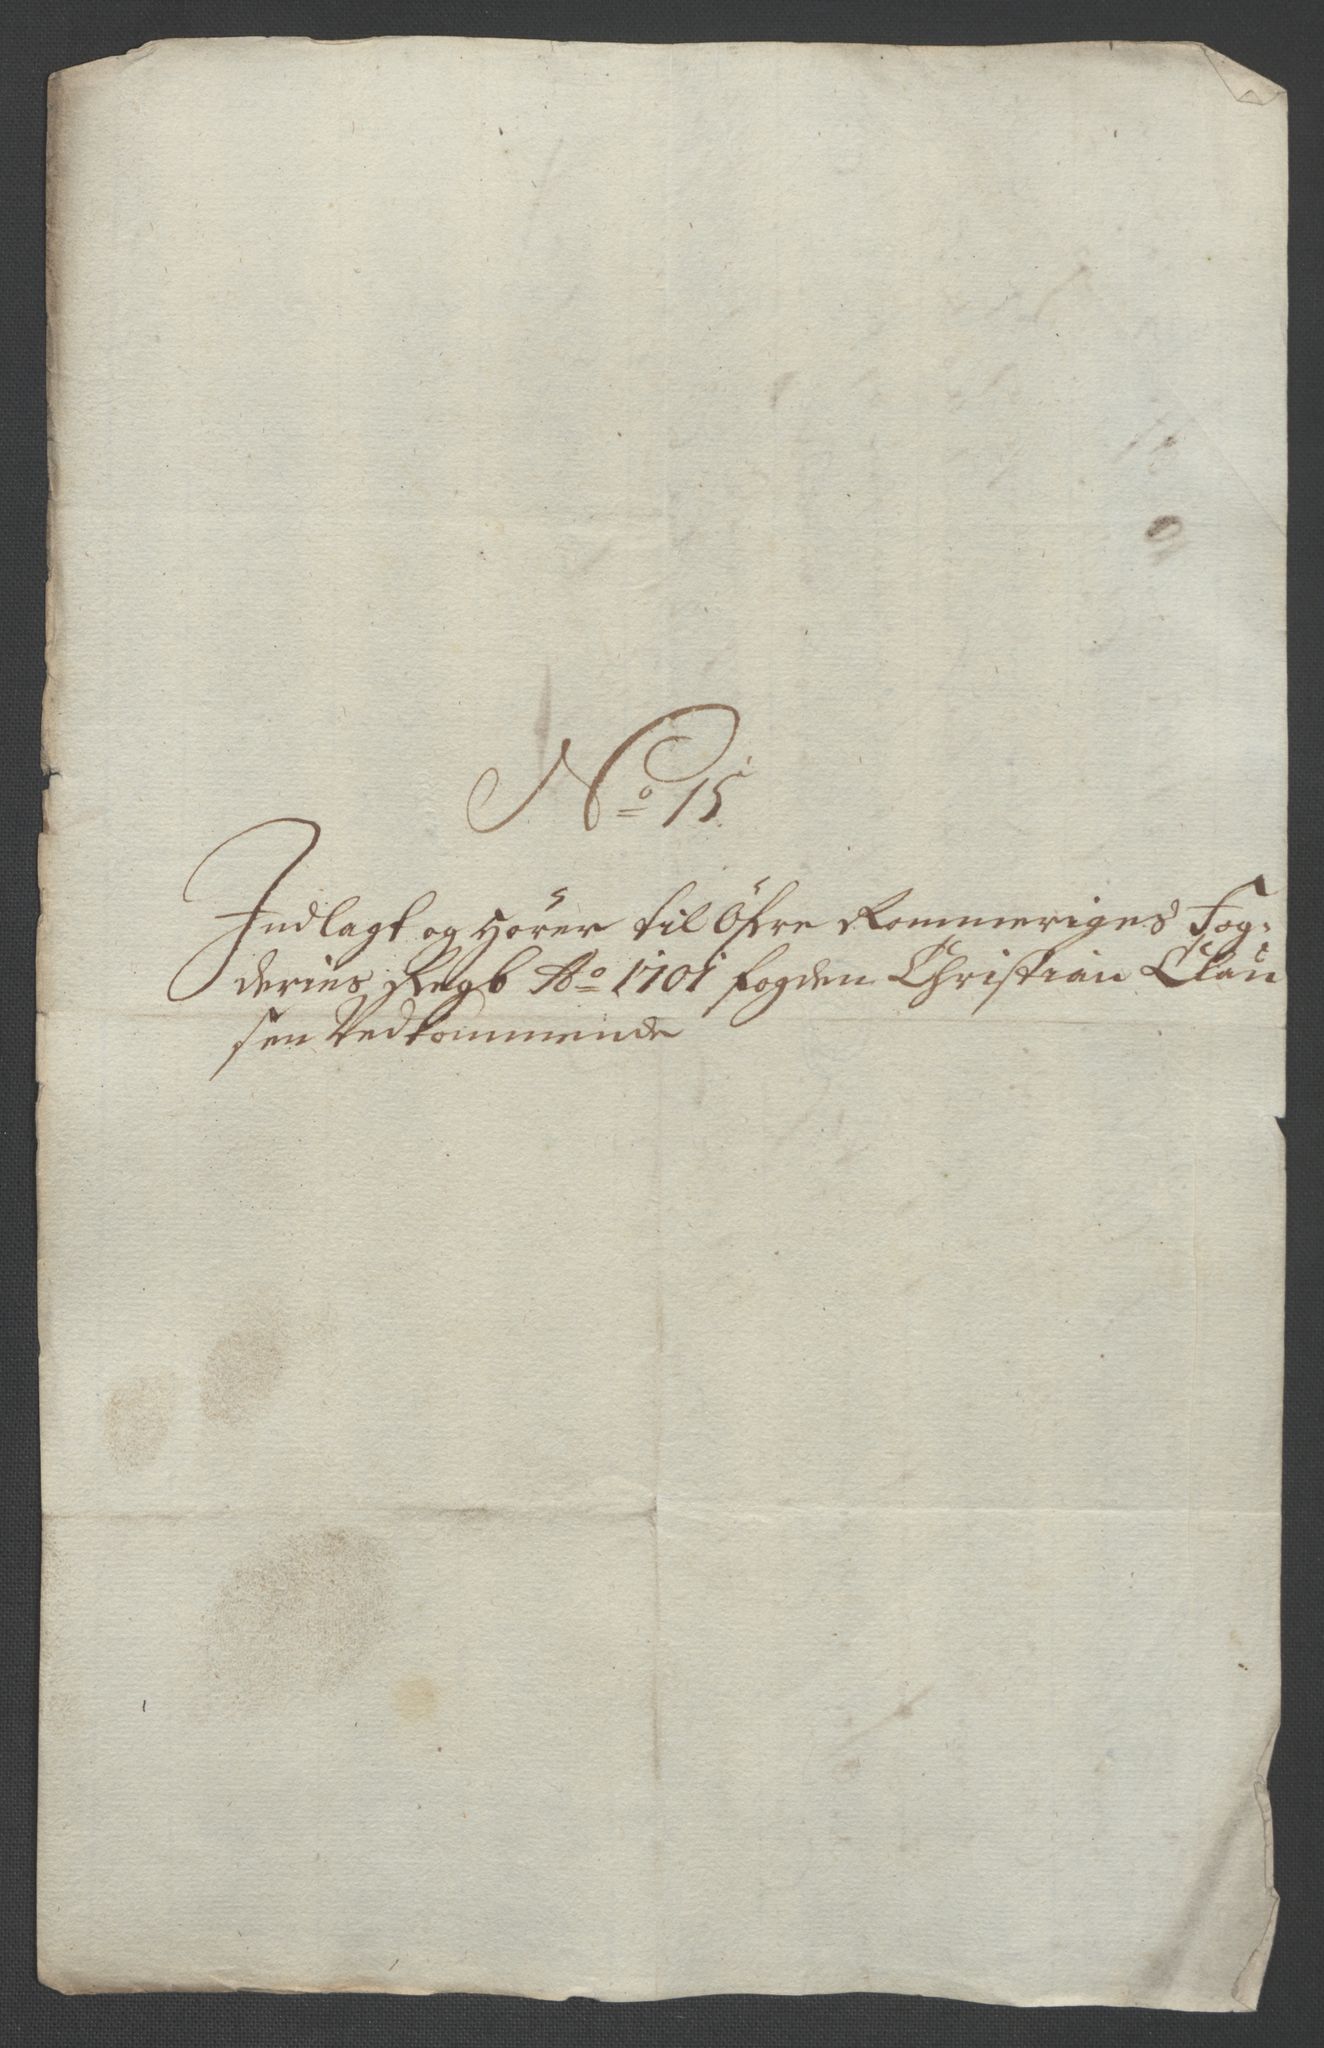 No 15
Indlagt og hörer til Öfre Rommeriges Fog-
deries Regb Ao 1701 fogden Christian Clau
sen Vedkommende